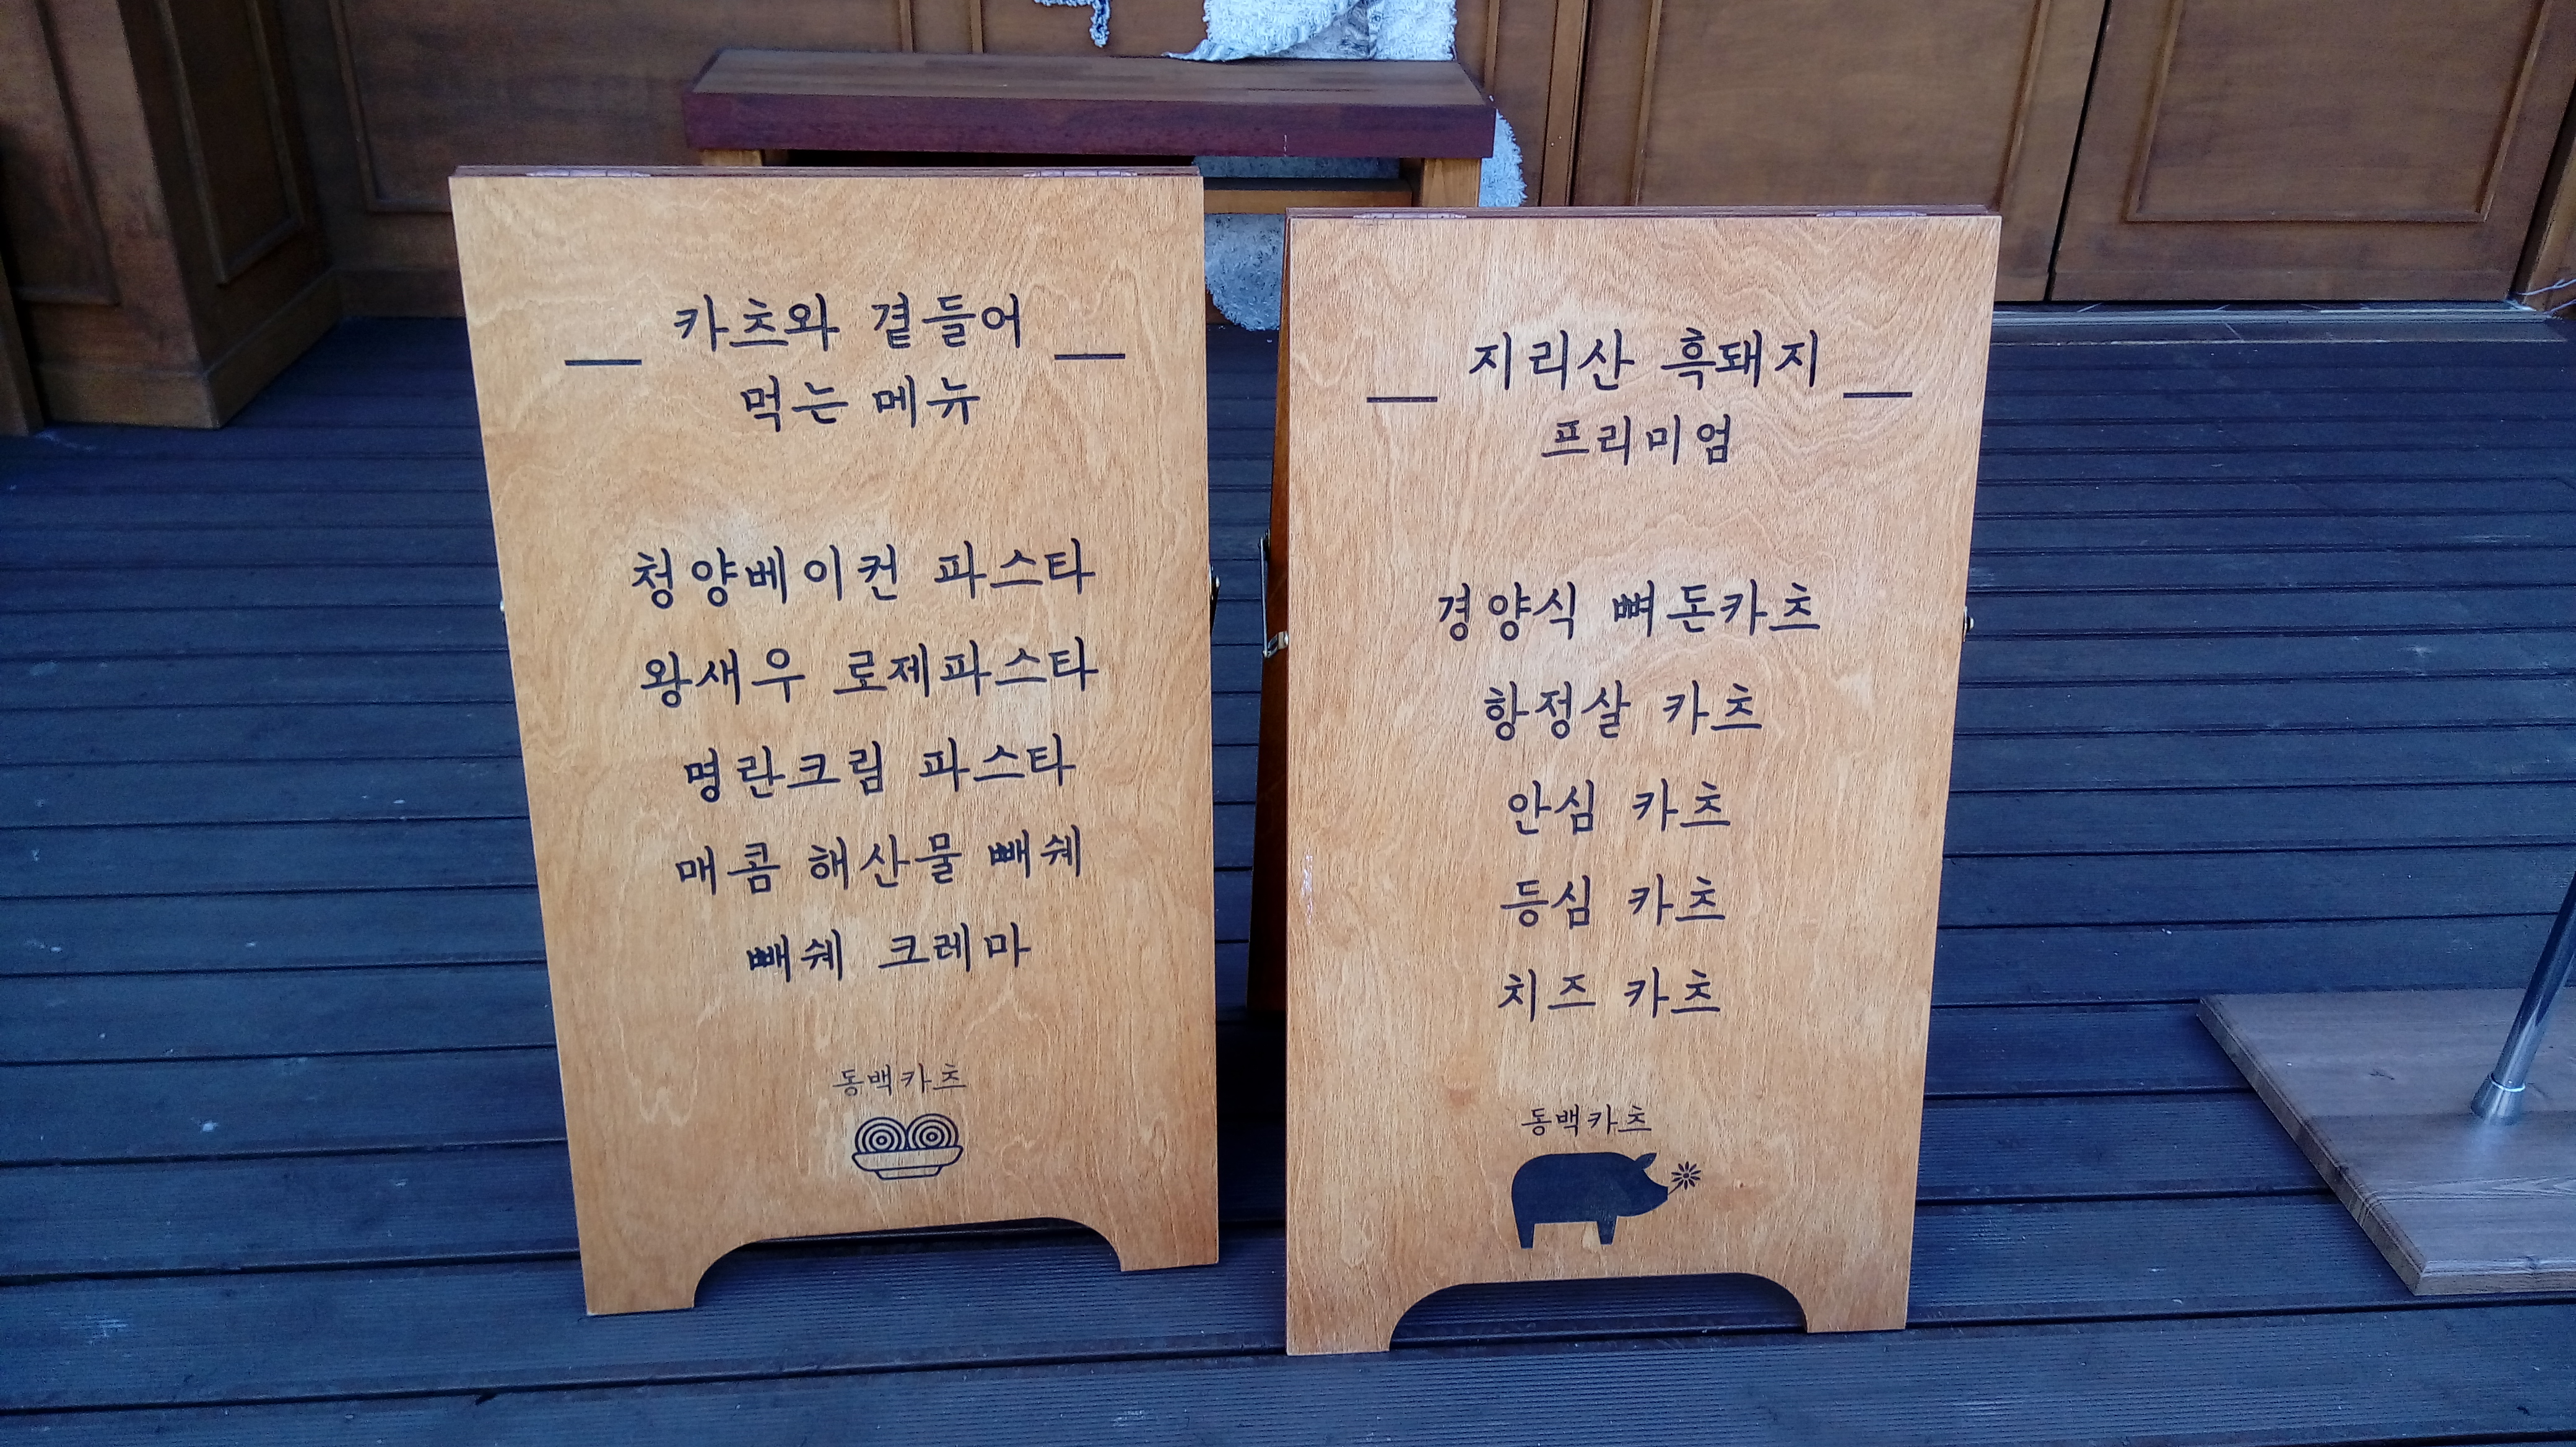 카츠와 곁들어
먹는 메뉴
청양베이컨 파스타
왕새우 로제파스타
명란크림 파스타
매콤 해산물 빼쉐
빼쉐 크레마
동백카츠
지리산 흑돼지
프리미엄
경양식 뼈돈카츠
항정살 카츠
안심 카츠
등심 카츠
치즈 카츠
동백카츠